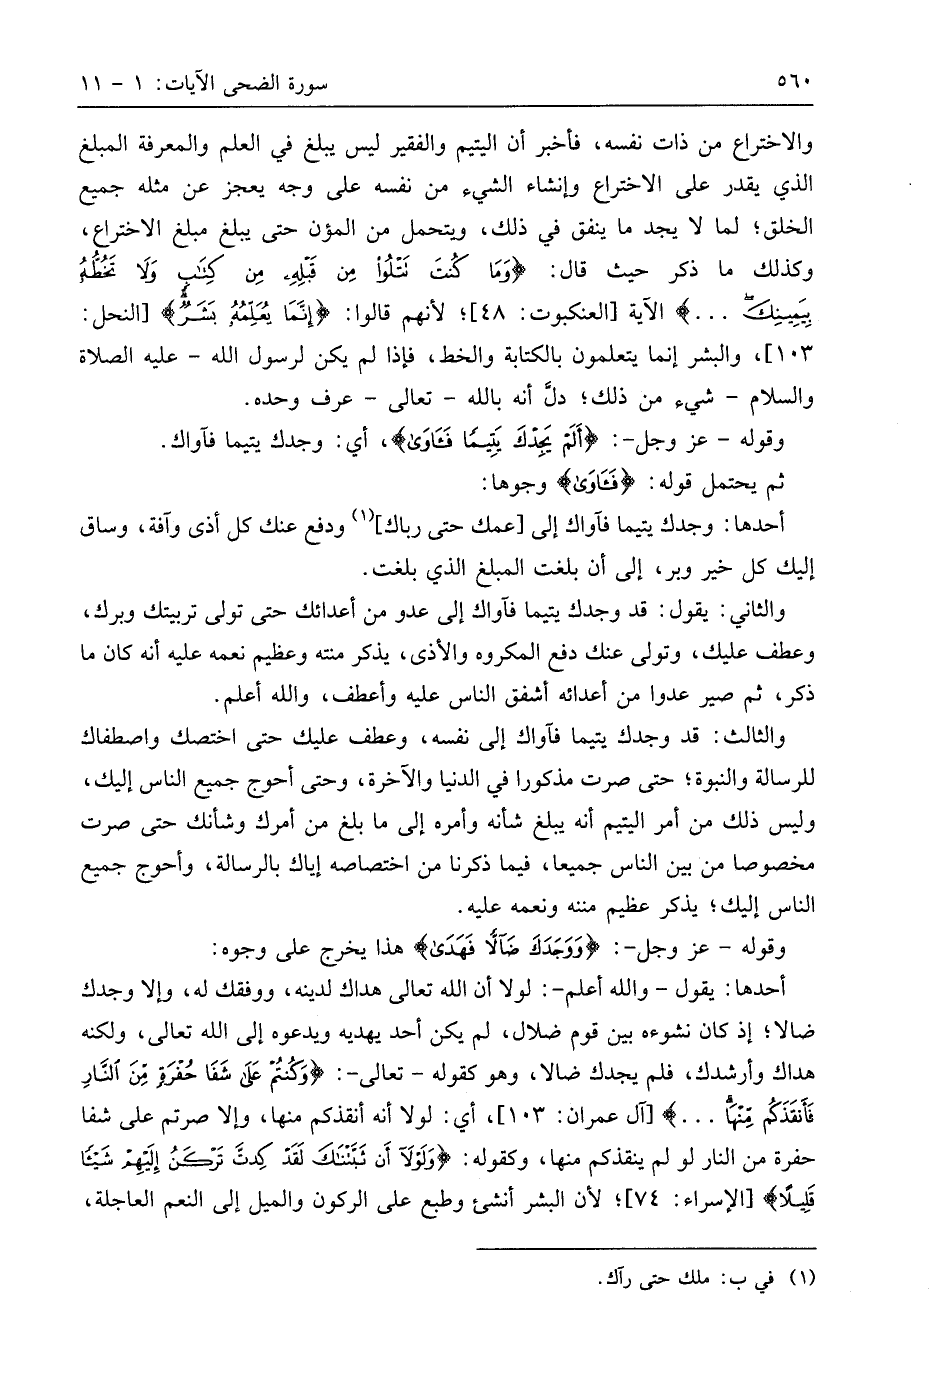 ٥٦٠
سورة الضحى الآيات: ١ - ١١
والاختراع من ذات نفسه، فأخبر أن اليتيم والفقير ليس يبلغ في العلم والمعرفة المبلغ
الذي يقدر على الاختراع وإنشاء الشيء من نفسه على وجه يعجز عن مثله جميع
الخلق؛ لما لا يجد ما ينفق في ذلك، ويتحمل من المؤن حتى يبلغ مبلغ الاختراع،
وكذلك ما ذكر حيث قال: ﴿وَمَا كُنتَ نَتْلُوا۟ مِن قَبْلِهِۦ مِن كِتَٰبٍ وَلَا تَخُطُّهُۥ
بِيَمِينِكَۖ ...﴾ الآية [العنكبوت: ٤٨]؛ لأنهم قالوا: ﴿إِنَّمَا يُعَلِّمُهُۥ بَشَرٌۗ﴾ [النحل:
١٠٣]، والبشر إنما يتعلمون بالكتابة والخط، فإذا لم يكن لرسول الله - عليه الصلاة
والسلام - شيء من ذلك؛ دلَّ أنه بالله - تعالى - عرف وحده.
وقوله - عز وجل-: ﴿أَلَمْ يَجِدْكَ يَتِيمًا فَـَٔاوَىٰ﴾، أي: وجدك يتيما فآواك.
ثم يحتمل قوله: ﴿فَـَٔاوَىٰ﴾ وجوها:
أحدها: وجدك يتيما فآواك إلى [عمك حتى رباك](١) ودفع عنك كل أذى وآفة، وساق
إليك كل خير وبر، إلى أن بلغت المبلغ الذي بلغت.
والثاني: يقول: قد وجدك يتيما فآواك إلى عدو من أعدائك حتى تولى تربيتك وبرك،
وعطف عليك، وتولى عنك دفع المكروه والأذى، يذكر منته وعظيم نعمه عليه أنه كان ما
ذكر، ثم صير عدوا من أعدائه أشفق الناس عليه وأعطف، والله أعلم.
والثالث: قد وجدك يتيما فآواك إلى نفسه، وعطف عليك حتى اختصك واصطفاك
للرسالة والنبوة؛ حتى صرت مذكورا في الدنيا والآخرة، وحتى أحوج جميع الناس إليك،
وليس ذلك من أمر اليتيم أنه يبلغ شأنه وأمره إلى ما بلغ من أمرك وشأنك حتى صرت
مخصوصا من بين الناس جميعا، فيما ذكرنا من اختصاصه إياك بالرسالة، وأحوج جميع
الناس إليك؛ يذكر عظيم مننه ونعمه عليه.
وقوله - عز وجل-: ﴿وَوَجَدَكَ ضَآلًّا فَهَدَىٰ﴾ هذا يخرج على وجوه:
أحدها: يقول - والله أعلم-: لولا أن الله تعالى هداك لدينه، ووفقك له، وإلا وجدك
ضالا؛ إذ كان نشوءه بين قوم ضلال، لم يكن أحد يهديه ويدعوه إلى الله تعالى، ولكنه
هداك وأرشدك، فلم يجدك ضالا، وهو كقوله - تعالى-: ﴿وَكُنتُمْ عَلَىٰ شَفَا حُفْرَةٍ مِّنَ ٱلنَّارِ
فَأَنقَذَكُم مِّنْهَاۗ ...﴾ [آل عمران: ١٠٣]، أي: لولا أنه أنقذكم منها، وإلا صرتم على شفا
حفرة من النار لو لم ينقذكم منها، وكقوله: ﴿وَلَوْلَآ أَن ثَبَّتْنَٰكَ لَقَدْ كِدتَّ تَرْكَنُ إِلَيْهِمْ شَيْـًٔا
قَلِيلًا﴾ [الإسراء: ٧٤]؛ لأن البشر أنشئ وطبع على الركون والميل إلى النعم العاجلة،
(١) في ب: ملك حتى رآك.